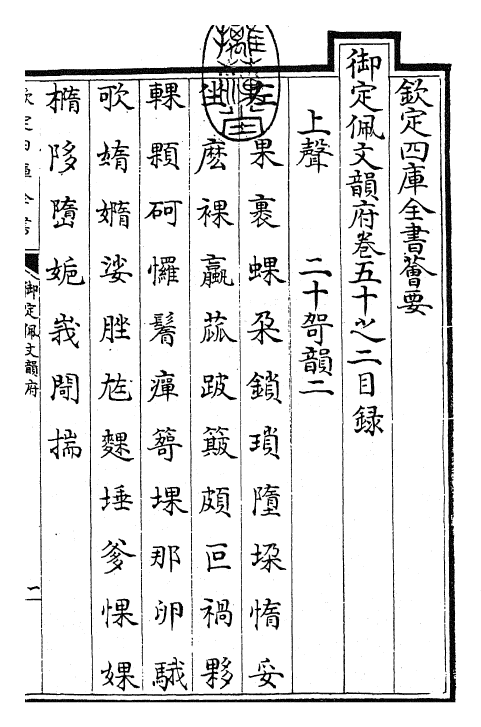 欽定四庫全書薈要
御定佩文韻府卷五十之二目錄
上聲　二十哿韻二
左果裹蜾朶鎖瑣墮垜惰妥
坐麽裸蠃蓏跛簸頗叵禍夥
輠顆砢㦬鬌癉笴堁那卵駊
㰤媠嫷娑脞尨㚌埵爹惈婐
橢陊墮婗峩閜揣
御定佩文韻府
一